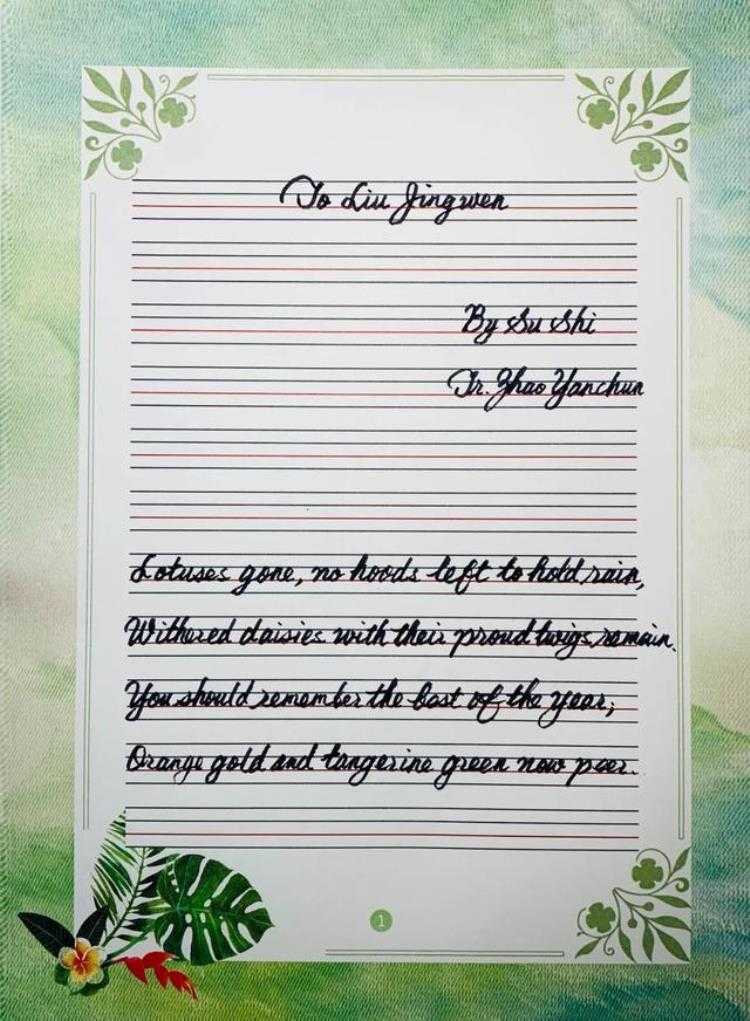 To Liu Jingwen
By Su Shi
Tr. Zhao Yanchun
Lotuses gone, no hoods left to hold rain,
Withered daisies with their proud twigs remain.
You should remember the best of the year;
Orange gold and tangerine green now peer.
1